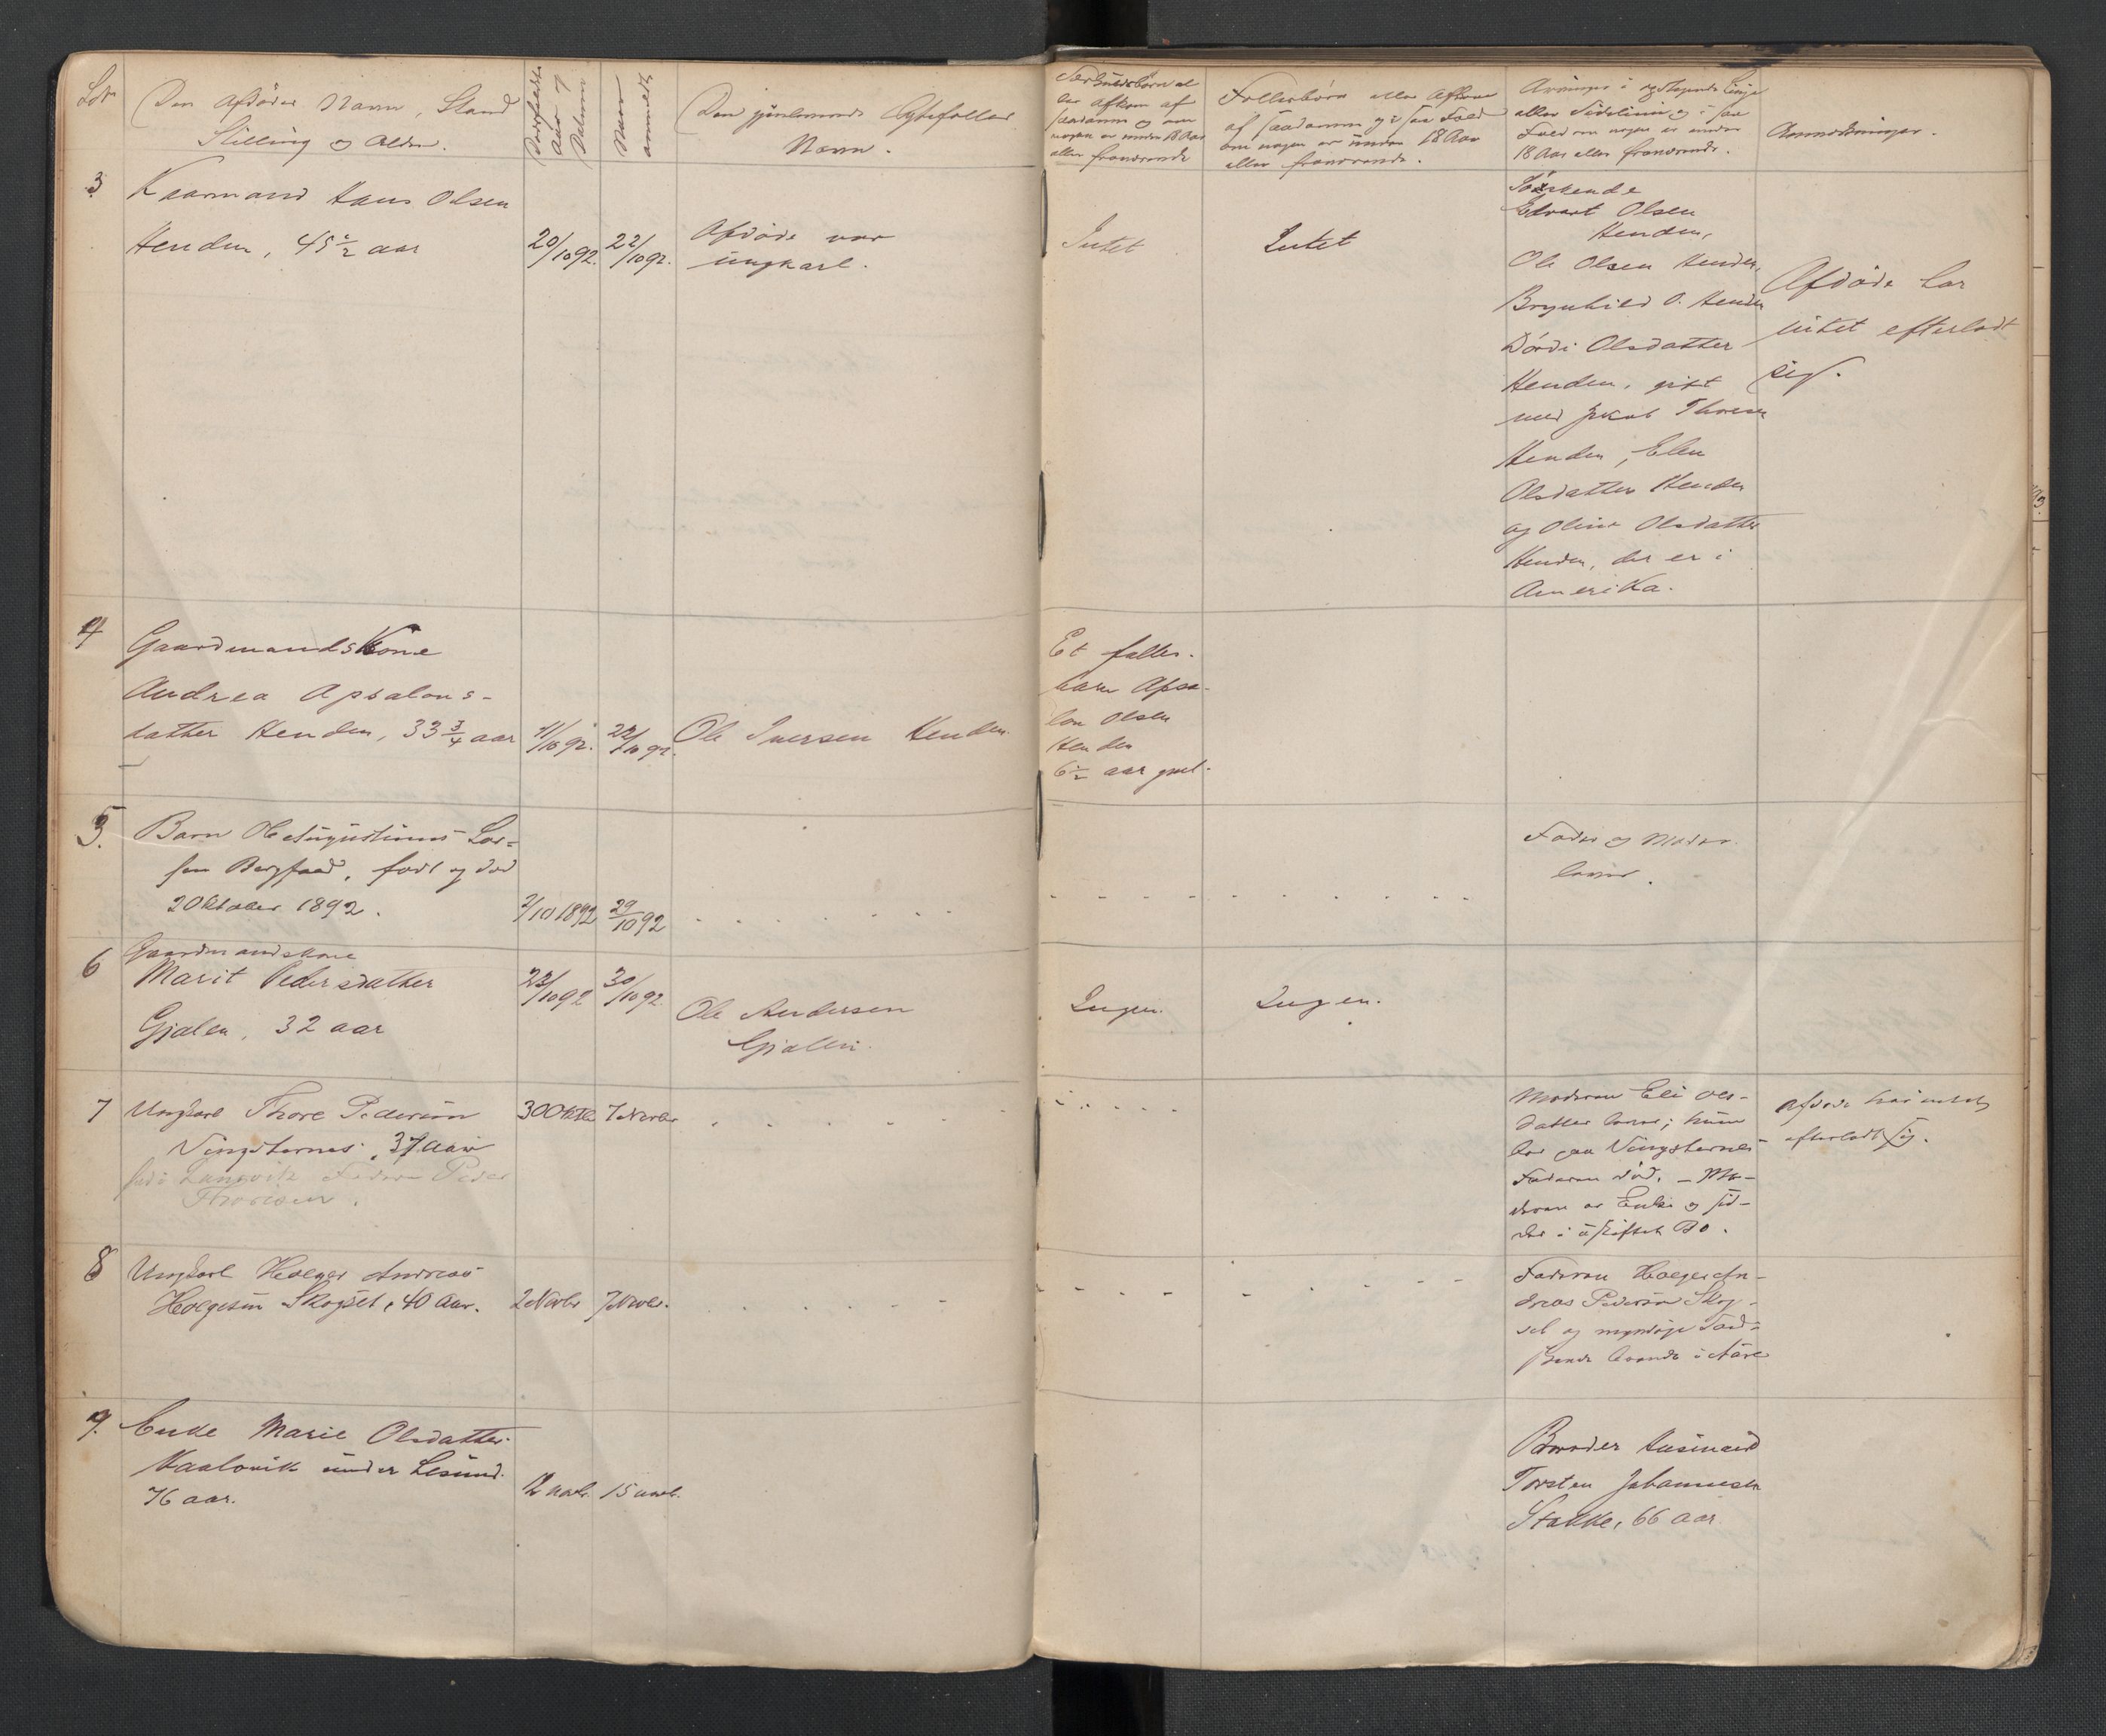 Den Afdödes Navn, Stand
Stilling og Alder.
Dødsfaldets
Aar og
Datum
Naar
anmeldt
Den gjenlevende Ægtefælles
Navn.
ler Afkom af
saadanne og om
nogen er under 18 Aar
eller fraværende
Fællesbörn eller Afkom
af saadanne og i saa Fald
om nogen er under 18 Aar
eller fraværende.
Arvinger i opstigende Linje
eller Sidelinie og i saa
Fald om nogen er under
18 Aar eller fraværende.
Anmærkninger.
3
Kaarmand Hans Olsen
Henden, 45 1/2 aar
20/10 92.
22/10 92.
Afdöde var
ungkarl.
Intet
Intet
Söskende
Edvart Olsen
Henden,
Ole Olsen Henden,
Brynhild O. Henden
Dórdi Olsdatter
Henden, gift
med Jakob Thoresen
Henden, Elen
Olsdatter Henden
og Oline Olsdatter
Henden, der er i
Amerika.
Afdöde har
intet efterladt
sig.
4
Gaardmandskone
Andrea Apsalons-
datter Henden, 33 3/4 aar
11/10 92.
22/10 92.
Ole Iversen Henden.
Et fælles-
barn Apsa-
lon Olsen
Henden
6 1/2 aar gml.
5.
Barn Ole Augustinus Lar-
sen Bergfad, født og død
2 Oktober 1892.
2/10 1892
29/10 92
Fader og Moder
lever.
6
Gaardmandskone
Marit Pedersdatter
Gjølen, 32 aar
22/10 92
30/10 92.
Ole Andersen
Gjølen.
Ingen.
Ingen.
7
Ungkarl Thore Pedersen
Vingsternes, 37 aar
født i Faderen Peder
Thoresen.
30 Oktbr
7 Novbr
Moderen Eli Ols-
datter lever; hun
bor paa Vingsternes
Faderen død. - Mo-
deren er Enke og sid-
der i uskiftet Bo.
Afdøde har intet
efterladt sig.
8
Ungkarl Holger Andreas
Holgersen Skogset, 40 Aar.
2 Novbr
7 Novbr.
Faderen Holger An-
dreas Pedersen Skog-
set og myndige Sød-
skende boende i Aure
9.
Enke Marie Olsdatter
under Lesund.
76 aar.
12 novbr.
15 novbr.
Broder Husmand
Torsten Johannesen
Stakke, 66 aar.